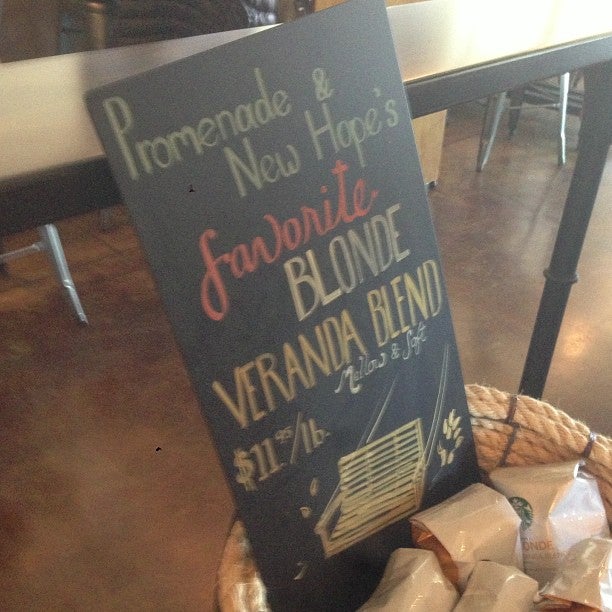 Promenade &
New Hope's
favorite
BLONDE
VERANDA BLEND
Mellow & Soft
$11.95/lb.
ONDE